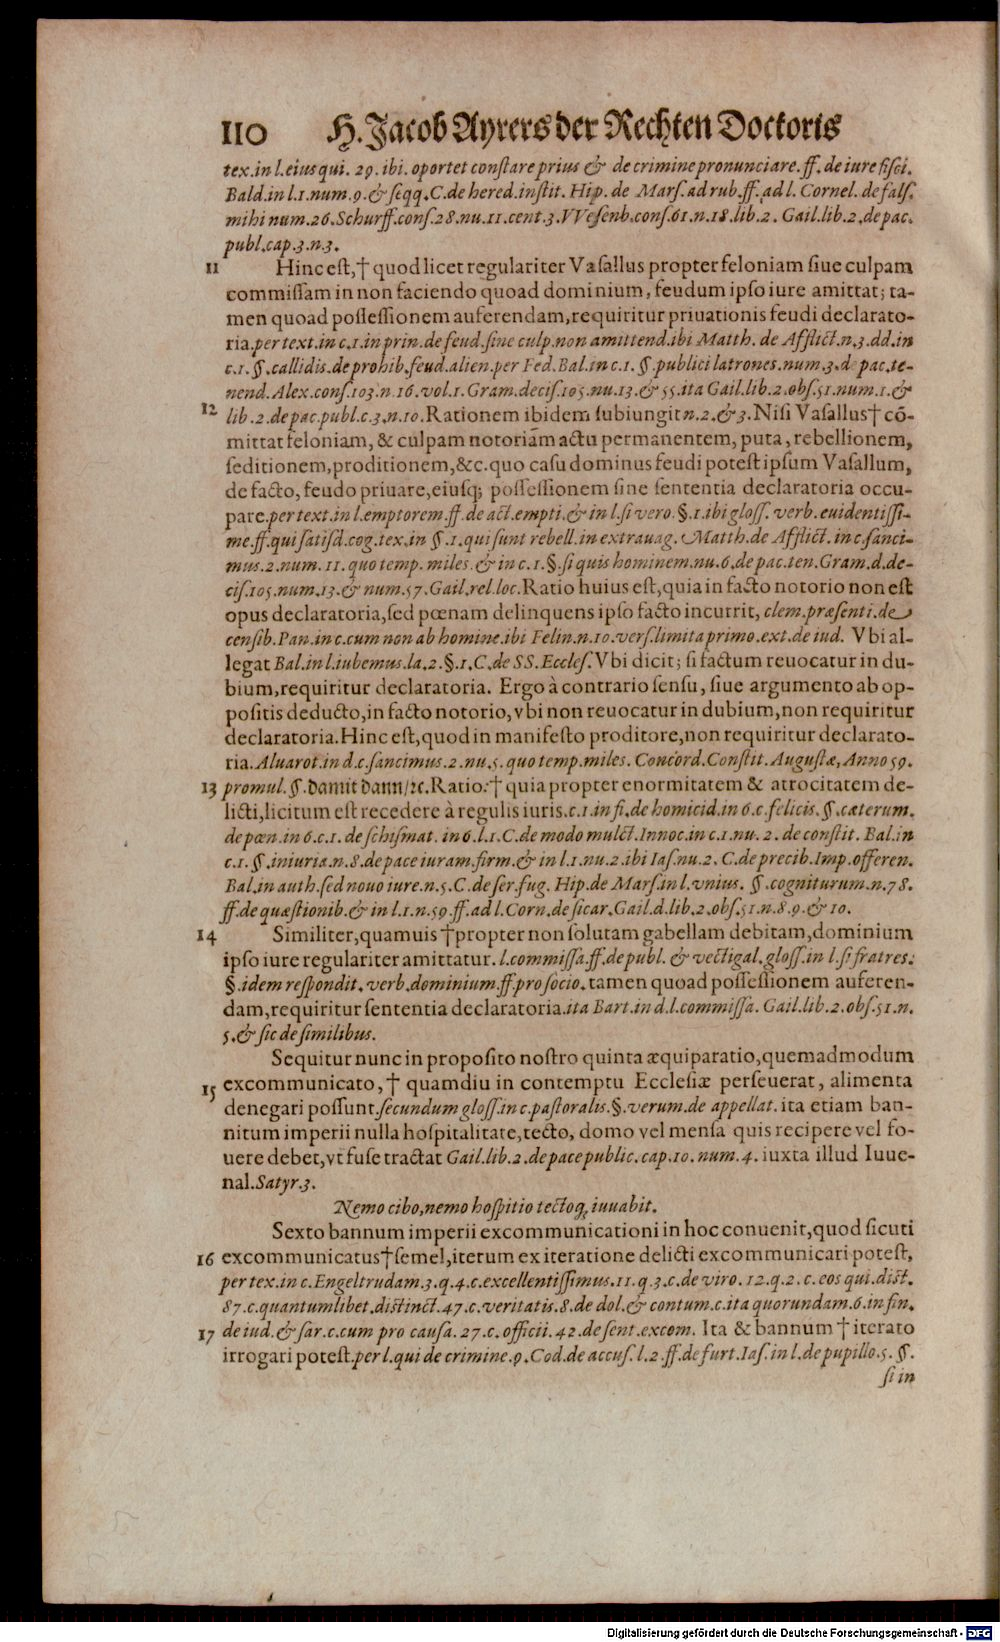 110 H. Jacob Ayrers der Rechten Doctoris
tex.in l.eius qui. 29. ibi. oportet conſtare prius & de crimine pronunciare. ff. de iure fiſci.
Bald.in l.1.num.9.& ſeqq.C.de hered.inſtit. Hip. de Marſ.ad rub.ff.ad l. Cornel. de falſ.
mihi num.26. Schurff.conſ.28.nu.11.cent.3.VVeſenb.conſ.61.n.18.lib.2. Gail.lib.2.de pac.
publ.cap.3.n.3.
11 Hinc eſt,† quod licet regulariter Vaſallus propter feloniam ſiue culpam
commiſſam in non faciendo quoad dominium, feudum ipſo iure amittat; ta-
men quoad poſſeſſionem auferendam, requiritur priuationis feudi declarato-
ria.per text.in c.1.in prin.de feud.ſine culp.non amittend.ibi Matth. de Afflict.n.3.dd.in
c.1. §.callidis.de prohib.feud.alien.per Fed.Bal.in c.1. §.publici latrones.num.3.de pac.te-
nend.Alex.conſ.103.n.16.vol.1. Gram.deciſ.105.nu.13.& 55.ita Gail.lib.2.obſ.51.num.1.&
12 lib.2.de pac.publ.c.3.n.10.Rationem ibidem ſubiungit n.2.& 3.Niſi Vaſallus† cõ-
mittat feloniam, & culpam notoriam actu permanentem, puta, rebellionem,
ſeditionem,proditionem,&c.quo caſu dominus feudi poteſt ipſum Vaſallum,
de facto, feudo priuare,eiusq; poſſeſſionem ſine ſententia declaratoria occu-
pare.per text.in l.emptorem.ff.de act.empti.& in l.ſi vero.§.1.ibi gloſſ. verb.euidentiſſi-
me.ff.qui ſatiſd.cog.tex.in §.1.qui ſunt rebell.in extrauag. Matth.de Afflict. in c.ſanci-
mus.2.num. 11. quo temp. miles. & in c.1.§.ſi quis hominem.nu.6.de pac.ten.Gram.d.de-
ciſ.105.num.13.& num.57.Gail.rel.loc.Ratio huius eſt,quia in facto notorio non eſt
opus declaratoria,ſed pœnam delinquens ipſo facto incurrit, clem.præſenti.de
cenſib.Pan.in c.cum non ab homine.ibi Felin.n.10.verſ.limita primo.ext.de iud. Vbi al-
legat Bal.in l.iubemus.la.2.§.1.C.de SS.Eccleſ.Vbi dicit; ſi factum reuocatur in du-
bium,requiritur declaratoria. Ergo à contrario ſenſu, ſiue argumento ab op-
poſitis deducto,in facto notorio,vbi non reuocatur in dubium,non requiritur
declaratoria.Hinc eſt,quod in manifeſto proditore,non requiritur declarato-
ria.Aluarot.in d.c.ſancimus.2.nu.5.quo temp.miles. Concord.Conſtit. Auguſtæ, Anno 59.
13 promul.§.damit dann/ꝛc.Ratio:† quia propter enormitatem & atrocitatem de-
licti,licitum eſt recedere à regulis iuris.c.1.in fi.de homicid.in 6.c.felicis.§.cæterum.
de pœn.in 6.c.1. de ſchiſmat. in 6.l.1.C.de modo mulct.Innoc.in c.1.nu. 2. de conſtit. Bal.in
c.1. §.iniuria.n.8.de pace iuram.firm.& in l.1.nu.2.ibi Iaſ.nu.2. C.de precib.Imp.offeren.
Bal.in auth.ſed nouo iure.n.5.C.de ſer.fug. Hip.de Marſ.in l.vnius. §.cogniturum.n.78.
ff.de quæſtionib.& in l.1.n.59.ff.ad l.Corn.de ſicar.Gail.d.lib.2.obſ.51.n.8.9.& 10.
14 Similiter,quamuis †propter non ſolutam gabellam debitam,dominium
ipſo iure regulariter amittatur. l.commiſſa.ff.de publ. & vectigal.gloſſ.in l.ſi fratres:
§.idem reſpondit. verb.dominium.ff.pro ſocio.tamen quoad poſſeſſionem auferen-
dam,requiritur ſententia declaratoria.ita Bart.in d.l.commiſſa. Gail.lib.2.obſ.51.n.
5.& ſic de ſimilibus.
Sequitur nunc in propoſito noſtro quinta æquiparatio,quemadmodum
15 excommunicato,† quamdiu in contemptu Eccleſiæ perſeuerat, alimenta
denegari poſſunt.ſecundum gloſſ.in c.paſtoralis.§.verum.de appellat. ita etiam ban-
nitum imperii nulla hoſpitalitate,tecto, domo vel menſa quis recipere vel fo-
uere debet,vt fuſe tractat Gail.lib.2.de pace public.cap.10.num.4. iuxta illud Iuue-
nal.Satyr.3.
Nemo cibo,nemo hoſpitio tectoq; iuuabit.
Sexto bannum imperii excommunicationi in hoc conuenit,quod ſicuti
16 excommunicatus†ſemel,iterum ex iteratione delicti excommunicari poteſt,
per tex.in c.Engeltrudam.3.q.4.c.excellentiſſimus.11.q.3.c.de viro.12.q.2. c. eos qui.diſt.
87.c.quantumlibet.diſtinct.47.c.veritatis.8.de dol.& contum.c.ita quorundam.6.in fin.
17 de iud.& ſar.c.cum pro cauſa. 27.c.officii. 42.de ſent.excom. Ita & bannum † iterato
irrogari poteſt.per l.qui de crimine.9.Cod.de accuſ.l.2.ff.de furt.Iaſ.in l.de pupillo.5.§.
ſi in
Digitalisierung gefördert durch die Deutsche Forschungsgemeinschaft - DFG